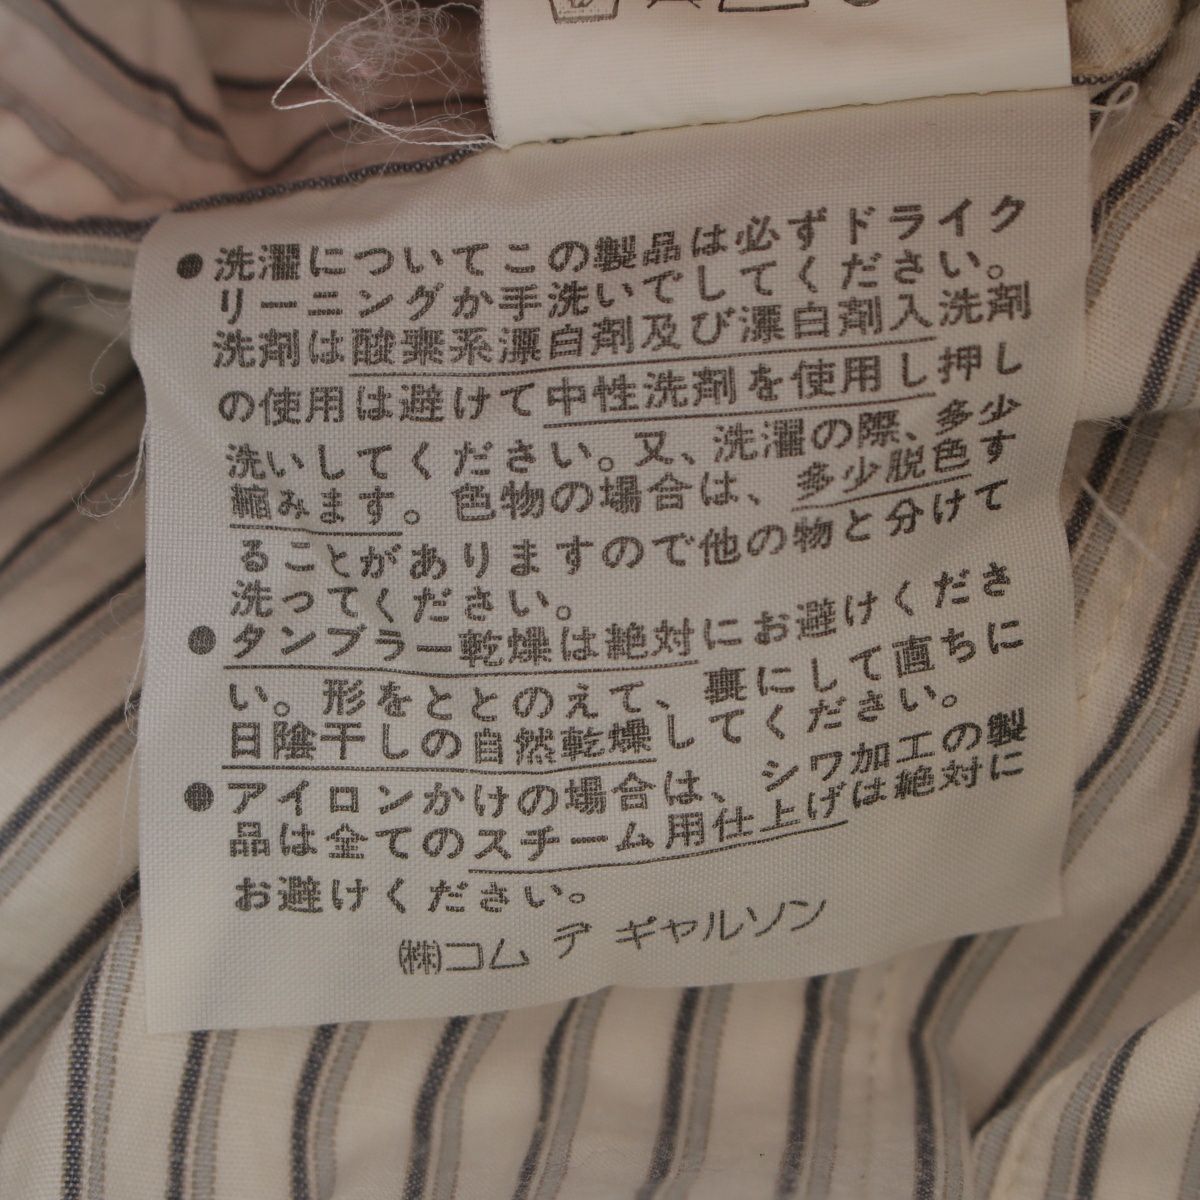 ●洗濯についてこの製品は必ずドライク
リーニングか手洗いでしてください。
洗剤は酸素系漂白剤及び漂白剤入洗剤
の使用は避けて中性洗剤を使用し押し
洗いしてください。又、洗濯の際、多少
縮みます。色物の場合は、多少脱色す
ることがありますので他の物と分けて
洗ってください。
●タンブラー乾燥は絶対にお避けくださ
い。形をととのえて、裏にして直ちに
日陰干しの自然乾燥してください。
●アイロンかけの場合は、シワ加工の製
品は全てのスチーム用仕上げは絶対に
お避けください。
㈱コム デ ギャルソン